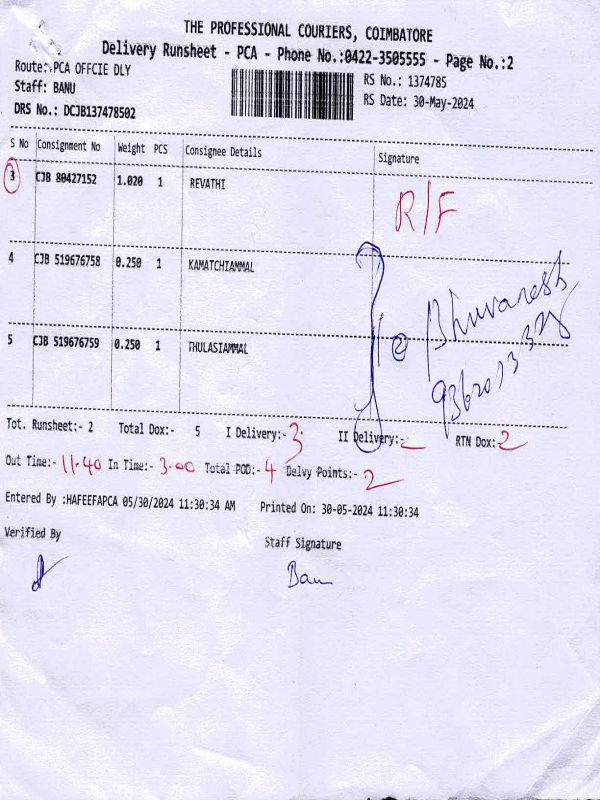 THE PROFESSIONAL COURIERS, COIMBATORE
Delivery Runsheet - PCA - Phone No.:0422-3505555 - Page No.:2
Route:-PCA OFFCIE DLY
RS No.: 1374785
Staff: BANU
RS Date: 30-May-2024
DRS No.: DCJB137478502
S No Consignment No Weight PCS Consignee Details Signature
3 CJB 80427152 1.020 1 REVATHI R/F
4 CJB 519676758 0.250 1 KAMATCHIAMMAL
② Bhuvanesh
5 CJB 519676759 0.250 1 THULASIAMMAL
Tot. Runsheet:- 2 Total Dox:- 5 I Delivery:- 3 II Delivery:- RTN Dox:- 2
Out Time:- 11.40 In Time:- 3.00 Total POD:- 4 Delvy Points:- 2
Entered By :HAFEEFAPCA 05/30/2024 11:30:34 AM Printed On: 30-05-2024 11:30:34
Verified By Staff Signature
Banu